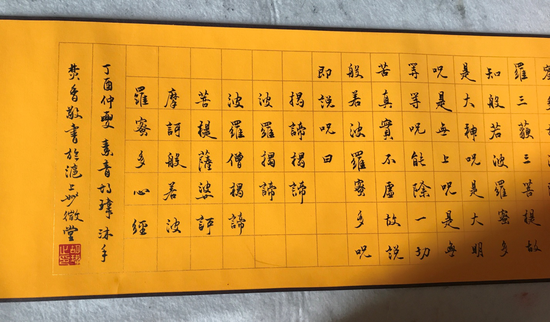 羅三藐三菩提故
知般若波羅蜜多
是大神呪是大明
呪是無上呪是無
等等呪能除一切
苦真實不虛故說
般若波羅蜜多呪
即說呪曰
揭諦揭諦
波羅揭諦
波羅僧揭諦
菩提薩婆訶
摩訶般若波
羅蜜多心經
丁酉仲夏素音胡瑋沐手
焚香敬書於滬上妙微堂